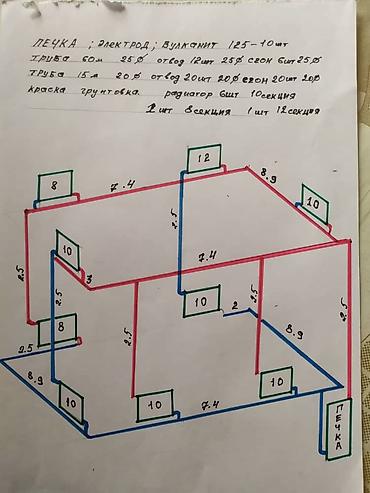 ПЕЧКА ; ЭЛЕКТРОД ; ВУЛКАНИТ 125-10шт
ТРУБА 60м 25Ø ОТВОД 12шт 25Ø СГОН 6шт 25Ø
ТРУБА 15м 20Ø ОТВОД 20шт 20Ø СГОН 20шт 20Ø
КРАСКА ГРУНТОВКА РАДИАТОР 6шт 10СЕКЦИЯ
2шт 8СЕКЦИЯ 1шт 12СЕКЦИЯ
12
8
7.4
8.9
10
2.5
10
7.4
3
2.5
2.5
10
2
2.5
2.5
2.5
8
8.9
2.5
8.9
10
10
10
7.4
ПЕЧКА